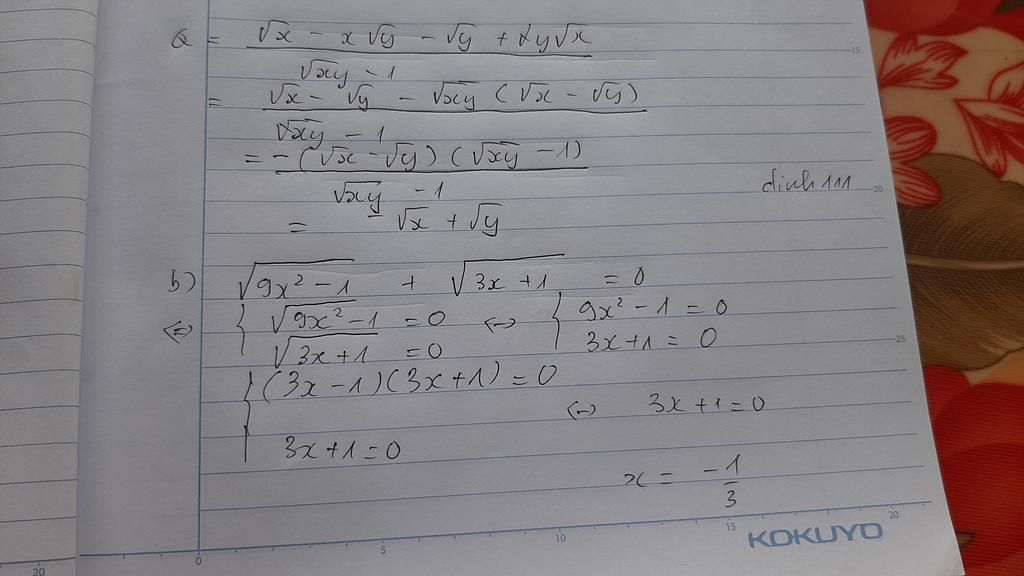 Q = (√x - x√y - √y + y√x) / (√xy - 1)
= (√x - √y - √xy (√x - √y)) / (√xy - 1)
= -(√x - √y)(√xy - 1) / (√xy - 1)
dinh 111
= √x + √y
b) √(9x² - 1) + √(3x + 1) = 0
⇔ { √(9x² - 1) = 0 ↔ { 9x² - 1 = 0
√(3x + 1) = 0 3x + 1 = 0
{ (3x - 1)(3x + 1) = 0
↔ 3x + 1 = 0
3x + 1 = 0
x = -1/3
0 5 10 15 20
15
20
25
KOKUYO
20